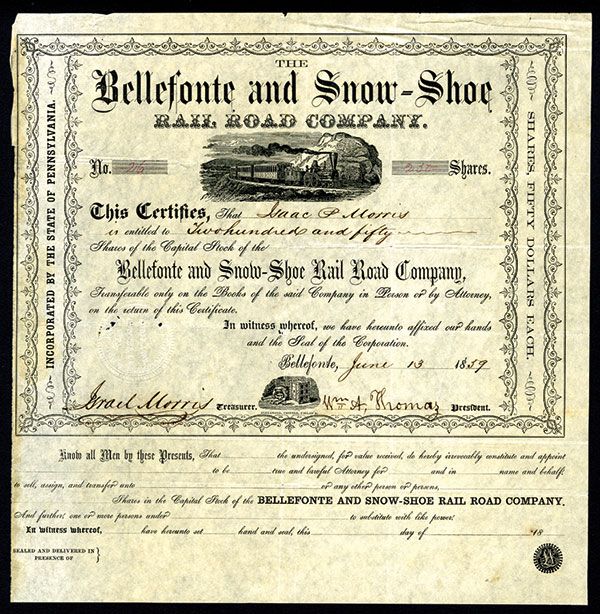 THE
Bellefonte and Snow-Shoe
RAIL ROAD COMPANY.
No. Shares.
This Certifies, That Isaac P. Morris
is entitled to Two hundred and fifty
Shares of the Capital Stock of the
Bellefonte and Snow-Shoe Rail Road Company,
Transferable only on the Books of the said Company in Person or by Attorney,
on the return of this Certificate.
In witness whereof, we have hereunto affixed our hands
and the Seal of the Corporation.
Bellefonte, June 13 1859
Israel Morris Treasurer. Wm A. Thomas President.
INCORPORATED BY THE STATE OF PENNSYLVANIA.
SHARES, FIFTY DOLLARS EACH.
Know all Men by these Presents, That the undersigned, for value received, do hereby irrevocably constitute and appoint
to be true and lawful Attorney for and in name and behalf:
to sell, assign, and transfer unto or any other person or persons,
Shares in the Capital Stock of the BELLEFONTE AND SNOW-SHOE RAIL ROAD COMPANY.
And further, one or more persons under to substitute with like power.
In witness whereof, have hereunto set hand and seal, this day of 18
SEALED AND DELIVERED IN
PRESENCE OF